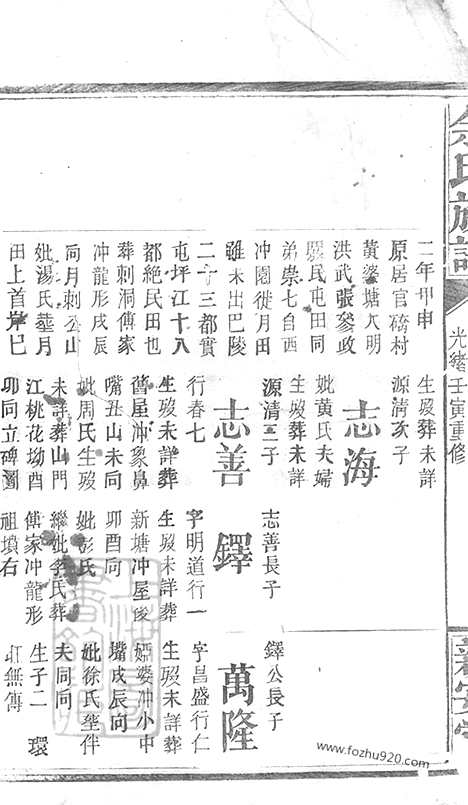 余氏族譜
光緒壬寅重修
新安堂
二年甲申
原居官橋村
黃婆塘大明
洪武張參政
驟民屯田同
弟崇七自西
冲園徙月田
雖未出巴陵
二十三都實
屯坪江十八
都絶民田也
葬刺洞傅家
冲龍形戌辰
向月刺公山
妣湯氏塟月
田上首岸巳
源清次子
志海
生歿葬未詳
妣黃氏夫婦
生歿葬未詳
源清三子
志善
行春七
生歿未詳葬
舊屋冲象鼻
嘴丑山未向
妣周氏生歿
未詳葬山門
江桃花坳酉
卯向立碑圖
志善長子
鐸
字明道行一
生歿未詳葬
新塘冲屋後
卯酉向
妣彭氏
繼妣李氏葬
傅家冲龍形
祖墳右
鐸公長子
萬隆
字昌盛行仁
生歿未詳葬
婭婆冲小中
嘴戌辰向
妣徐氏塟伴
夫同向
生子二 環
玒無傳
www.fozhu920.com